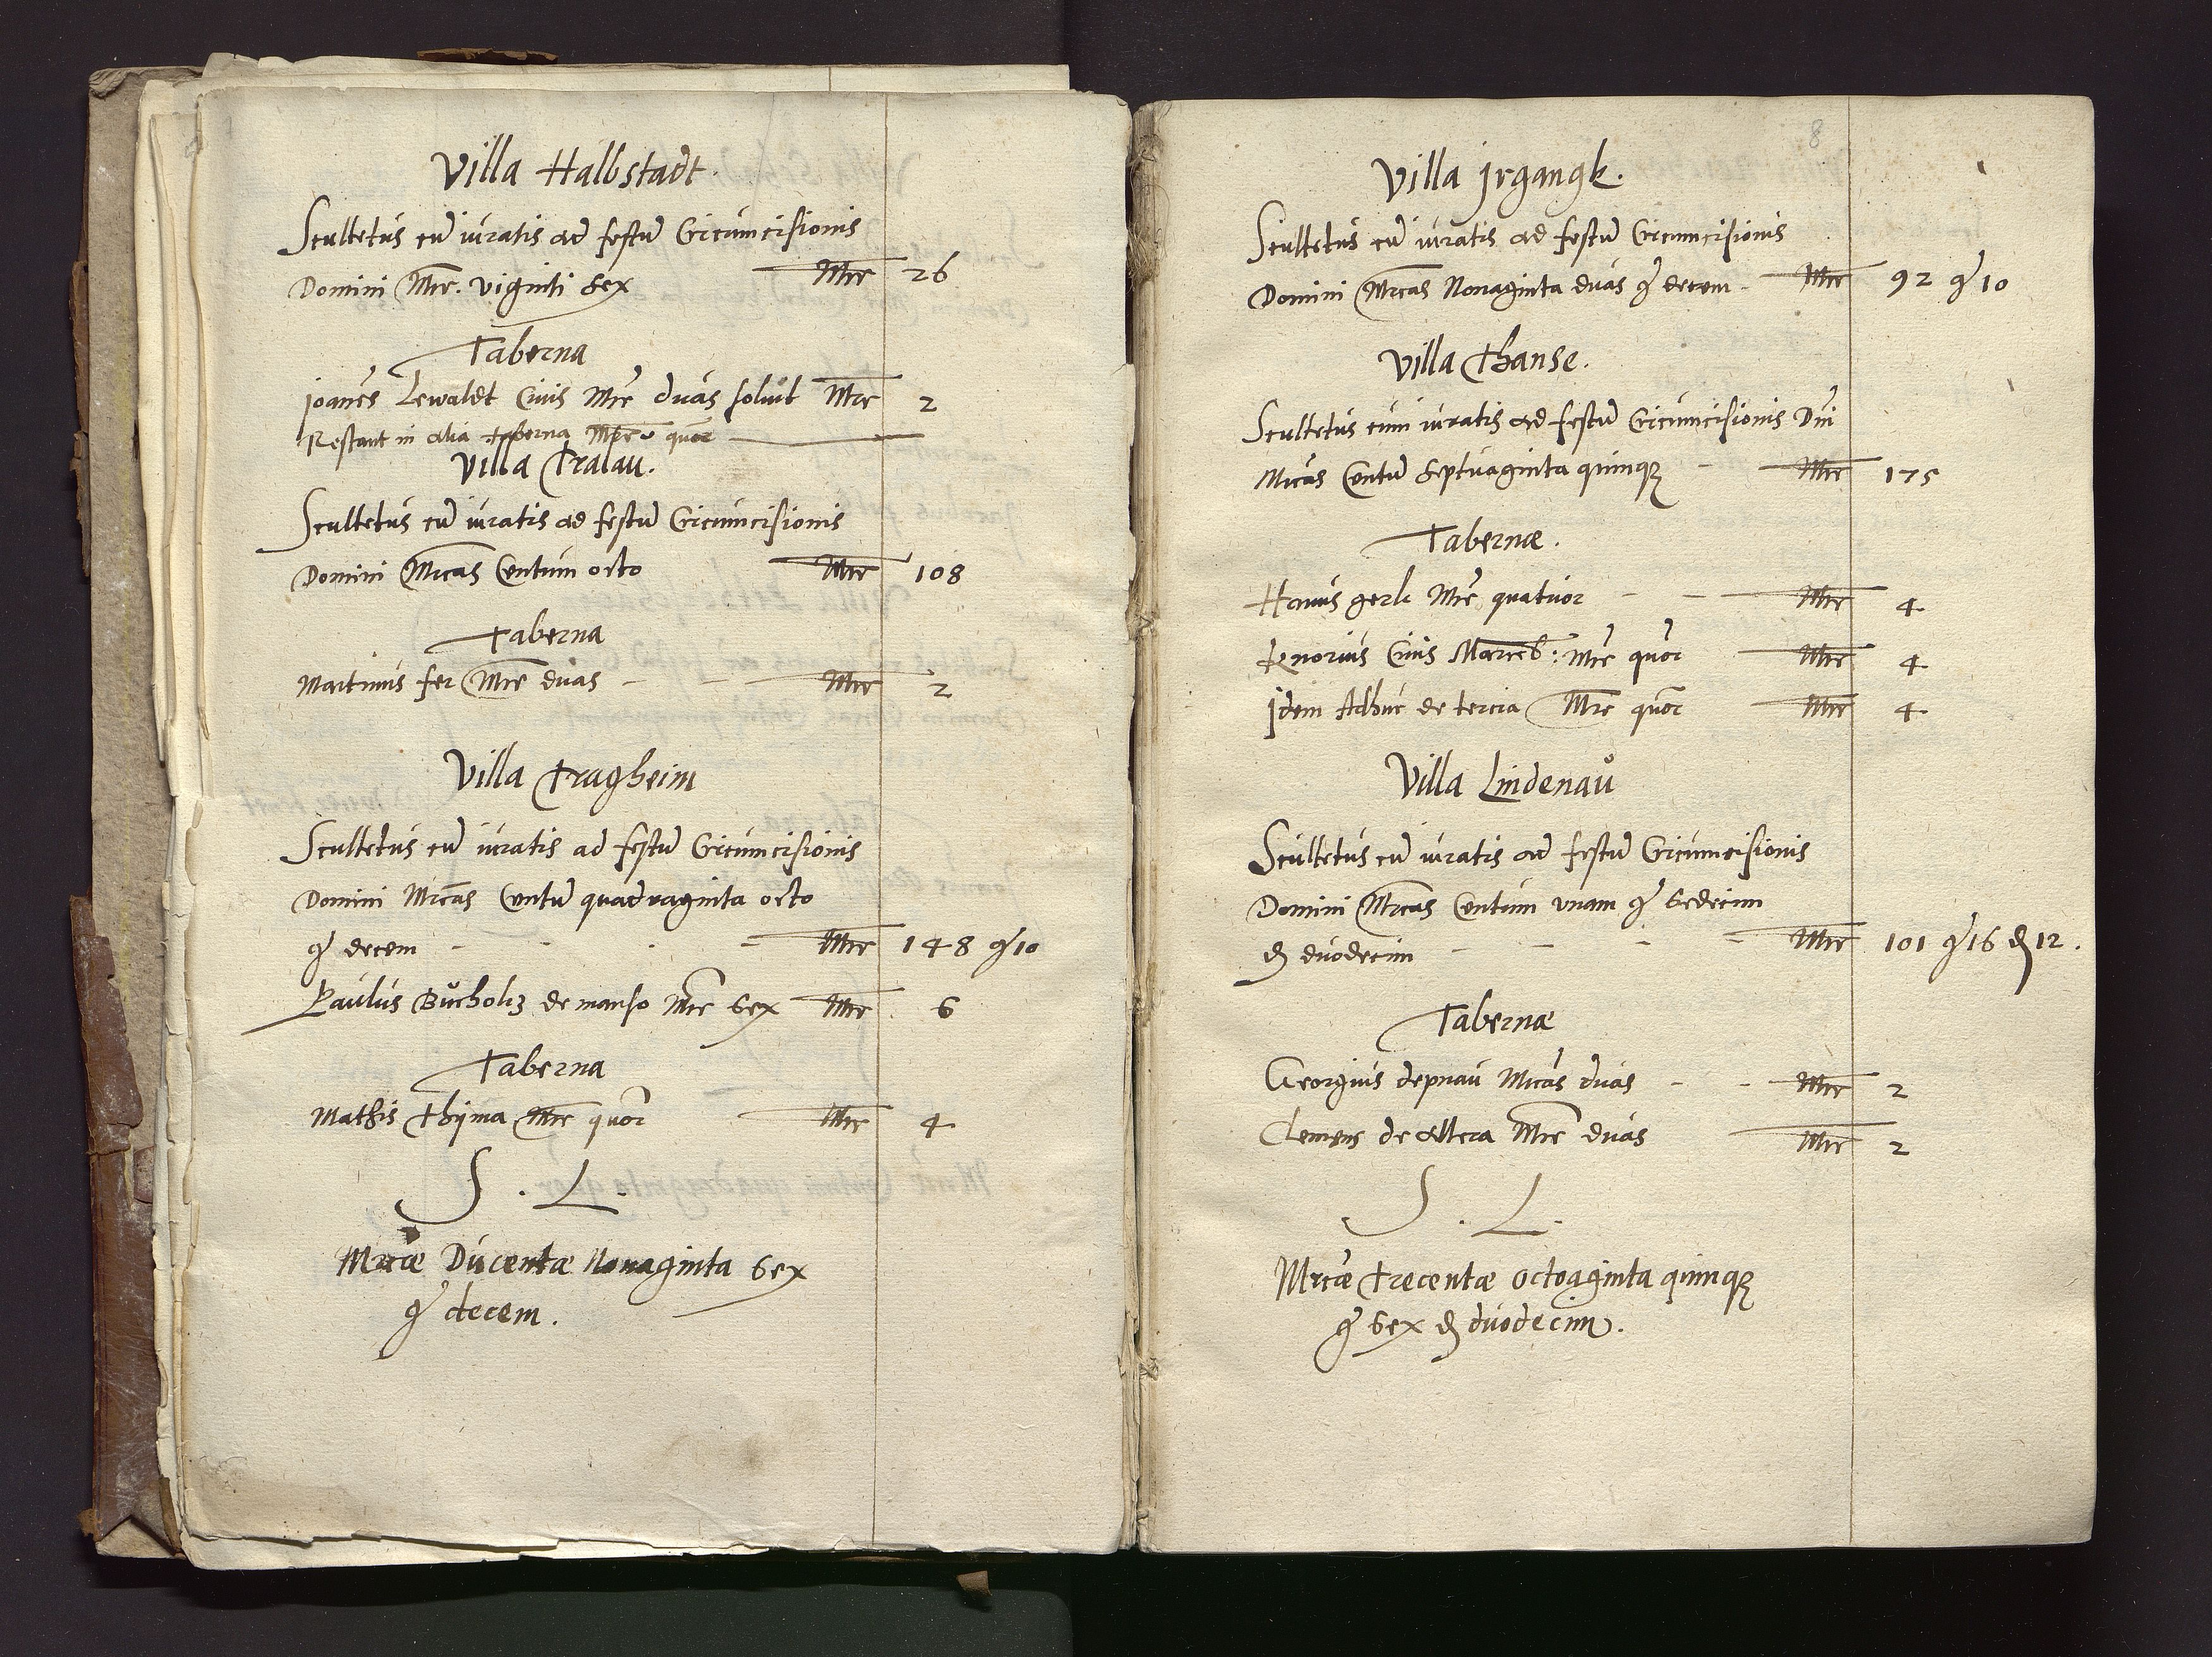 Villa Halbstadt.
Scultetus cū iuratis ad festū Circumcisionis
Domini Mrc. viginti sex Mrc 26
Taberna
Joanēs Lewaldt Ciuis Mrc duas soluit Mrc 2
Restant in alia taberna Mrc quor
Villa Tralau.
Scultetus cū iuratis ad festū Circumcisionis
Domini Mrcas Centum octo Mrc 108
Taberna
Martinus fer Mrc duas Mrc 2
Villa Tragheim
Scultetus cū iuratis ad festū Circumcisionis
Domini Mrcas Centū quadraginta octo
g̃ decem Mrc 148 g̃ 10
Paulus Bucholtz de manso Mrc sex Mrc 6
Taberna
Mathis Thijma Mrc quor Mrc 4
S. L.
Mrcæ Ducentæ Nonaginta sex
g̃ decem.
8
Villa Jrgangk.
Scultetus cū iuratis ad festū Circumcisionis
Domini Mrcas Nonaginta duas g̃ decem Mrc 92 g̃ 10
Villa Thanse.
Scultetus cum iuratis ad festū Circumcisionis Dni
Mrcas Centū septuaginta quinqʒ Mrc 175
Tabernæ.
Hanus gerk Mrc quatuor Mrc 4
Knorius Ciuis Marieb: Mrc quor Mrc 4
Jdem Adhuc de tercia Mrc quor Mrc 4
Villa Lindenau
Scultetus cū iuratis ad festū Circumcisionis
Domini Mrcas Centum vnam g̃ sedecim
₰ duodecim Mrc 101 g̃ 16 ₰ 12.
Tabernæ
Georgius depnau Mrcas duas Mrc 2
Clemens de altera Mrc duas Mrc 2
S. L.
Mrcæ Trecentæ octoaginta quinqʒ
g̃ sex ₰ duodecim.